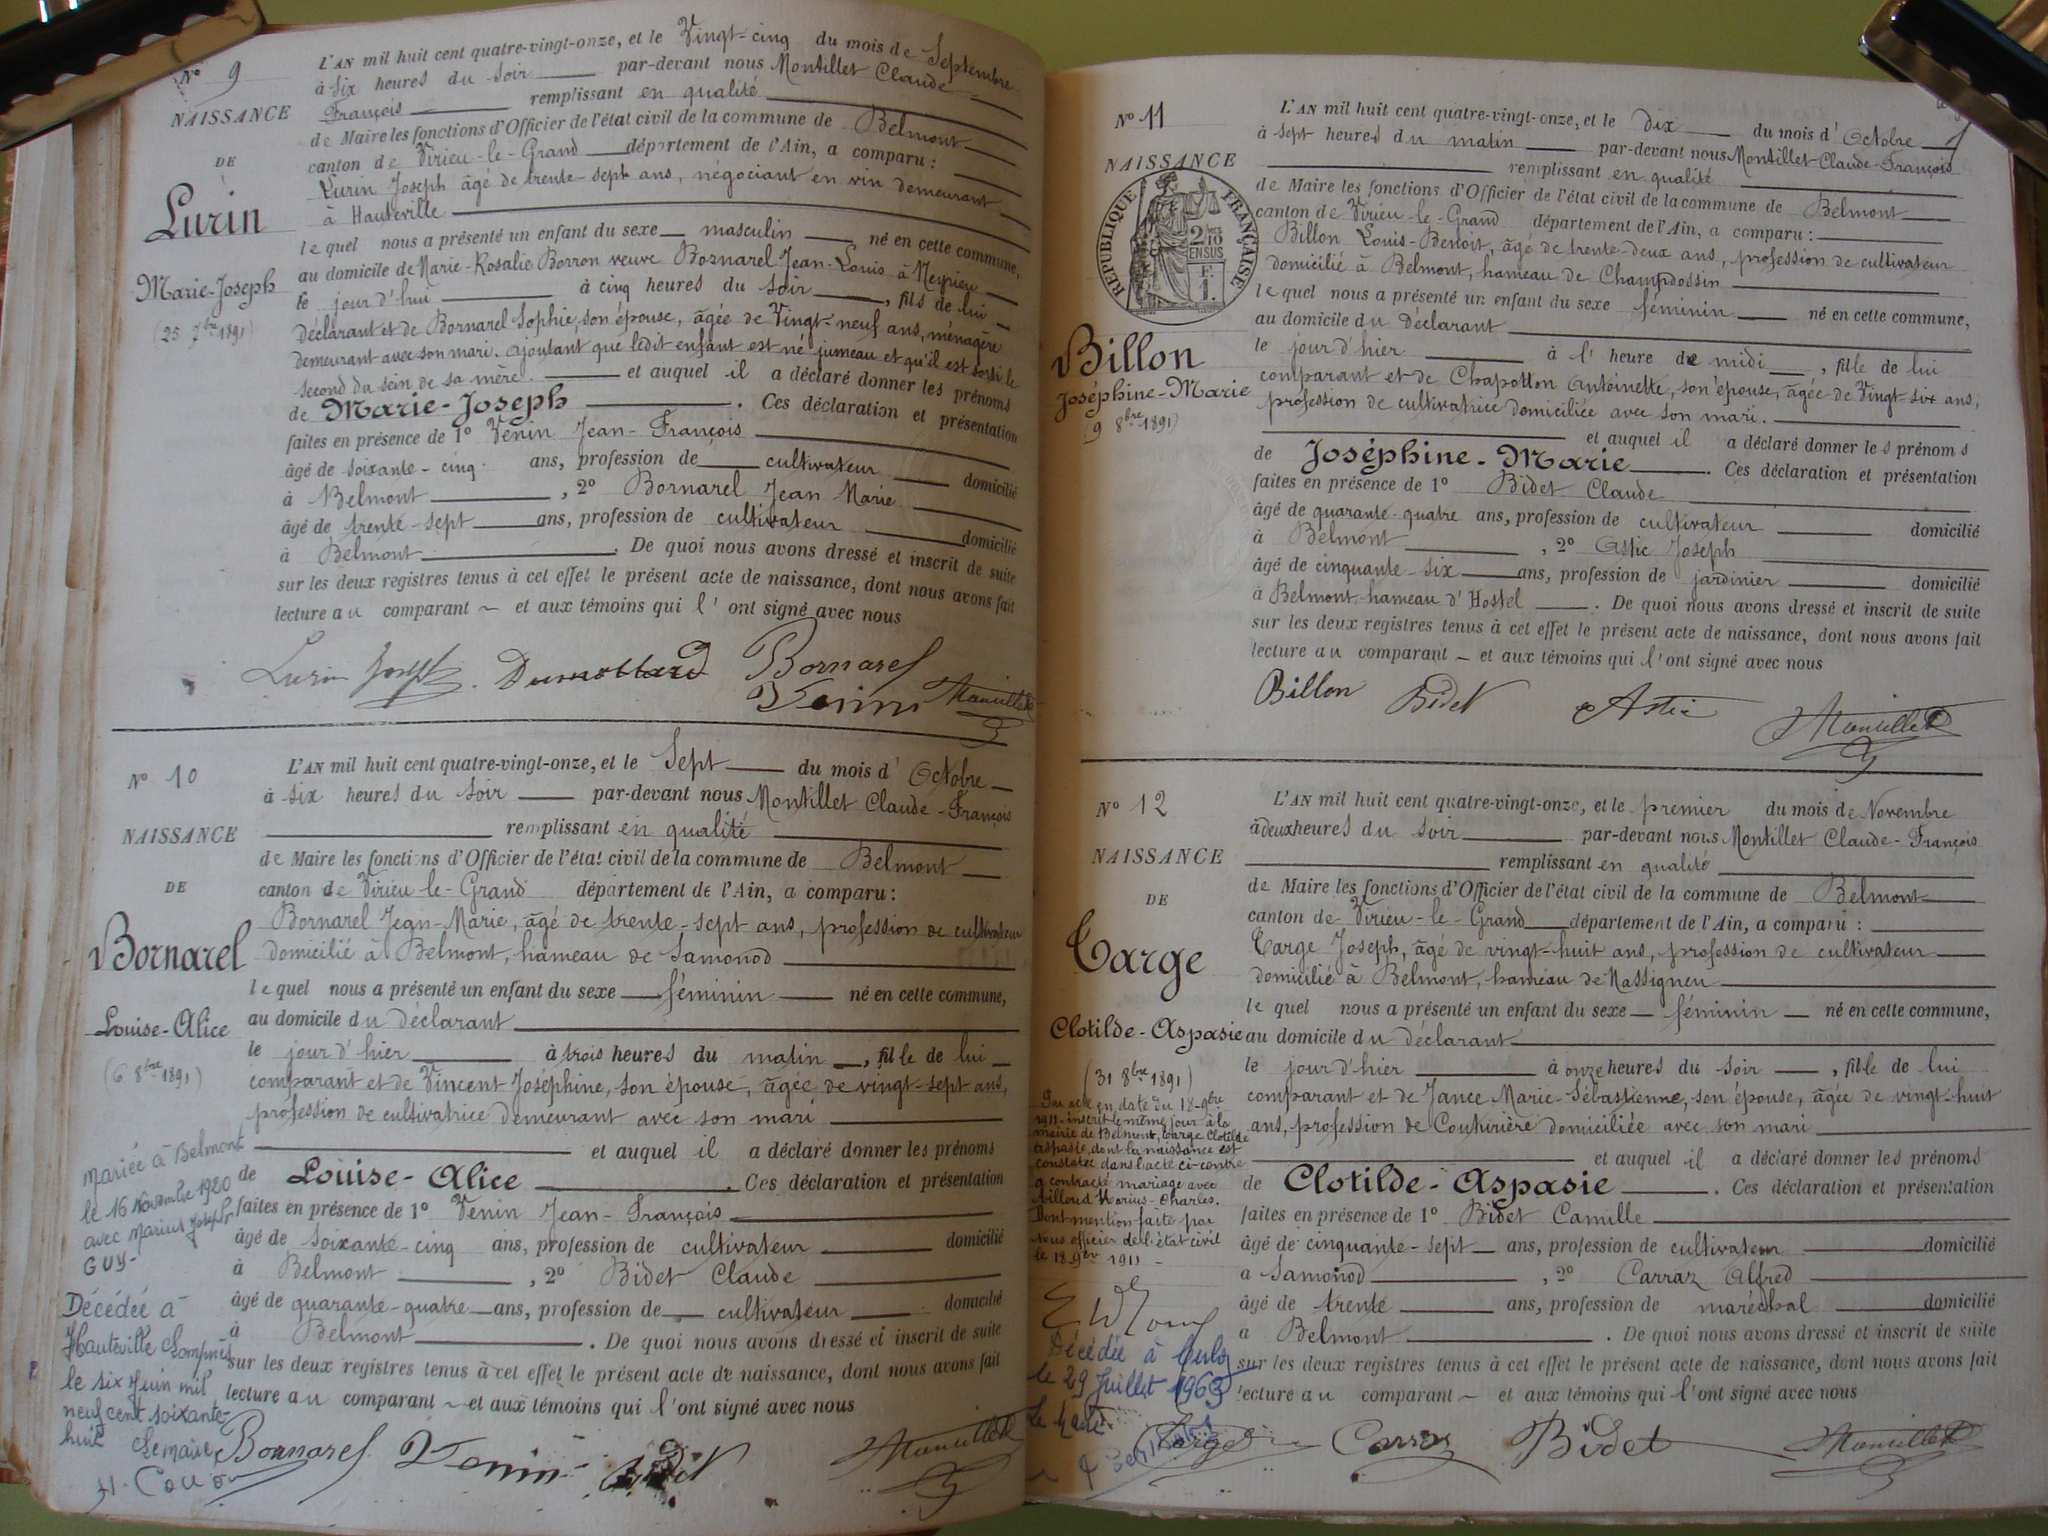 Nº 9
NAISSANCE
DE
Lurin
Marie-Joseph
(25 7bre 1891)
L'AN mil huit cent quatre-vingt-onze, et le Vingt-cinq du mois de Septembre
à six heures du soir par-devant nous Montillet Claude
François remplissant en qualité
de Maire les fonctions d'Officier de l'état civil de la commune de Belmont
canton de Virieu-le-Grand département de l'Ain, a comparu :
Lurin Joseph âgé de trente-sept ans, négociant en vin demeurant
à Hauteville
lequel nous a présenté un enfant du sexe masculin né en cette commune,
au domicile de Marie-Rosalie Borron veuve Bornarel Jean-Louis à
le jour d'hui à cinq heures du soir, fils de lui
déclarant et de Bornarel Sophie, son épouse, âgée de Vingt-neuf ans, ménagère
demeurant avec son mari. Ajoutant que ledit enfant est né jumeau et qu'il est sorti le
second du sein de sa mère. et auquel il a déclaré donner les prénoms
de Marie-Joseph. Ces déclaration et présentation
faites en présence de 1º Venin Jean-François
âgé de soixante-cinq ans, profession de cultivateur domicilié
à Belmont, 2º Bornarel Jean Marie
âgé de trente-sept ans, profession de cultivateur domicilié
à Belmont. De quoi nous avons dressé et inscrit de suite
sur les deux registres tenus à cet effet le présent acte de naissance, dont nous avons fait
lecture au comparant ~ et aux témoins qui l'ont signé avec nous
Lurin Joseph Dumollard Bornarel
Venin Montillet
Nº 10
NAISSANCE
DE
Bornarel
Louise-Alice
(6 8bre 1891)
Mariée à Belmont
le 16 Novembre 1920
avec Marius Joseph
GUY-
Décédée à
Hauteville Lompnes
le six juin mil
neuf cent soixante-
huit
Le maire,
L'AN mil huit cent quatre-vingt-onze, et le Sept du mois d'Octobre
à six heures du soir par-devant nous Montillet Claude-François
remplissant en qualité
de Maire les fonctions d'Officier de l'état civil de la commune de Belmont
canton de Virieu-le-Grand département de l'Ain, a comparu :
Bornarel Jean-Marie, âgé de trente-sept ans, profession de cultivateur
domicilié à Belmont, hameau de Samonod
lequel nous a présenté un enfant du sexe féminin né en cette commune,
au domicile du déclarant
le jour d'hier à trois heures du matin, fille de lui
comparant et de Vincent Joséphine, son épouse, âgée de vingt-sept ans,
profession de cultivatrice demeurant avec son mari
et auquel il a déclaré donner les prénoms
de Louise-Alice. Ces déclaration et présentation
faites en présence de 1º Venin Jean-François
âgé de soixante-cinq ans, profession de cultivateur domicilié
à Belmont, 2º Bidet Claude
âgé de quarante-quatre ans, profession de cultivateur domicilié
à Belmont. De quoi nous avons dressé et inscrit de suite
sur les deux registres tenus à cet effet le présent acte de naissance, dont nous avons fait
lecture au comparant ~ et aux témoins qui l'ont signé avec nous
Bornarel Venin Bidet Montillet
Nº 11
NAISSANCE
RÉPUBLIQUE FRANÇAISE
2/10
EN SUS
F. 1.
Billon
Joséphine-Marie
(9 8bre 1891)
L'AN mil huit cent quatre-vingt-onze, et le dix du mois d'Octobre
à sept heures du matin par-devant nous Montillet Claude-François
remplissant en qualité
de Maire les fonctions d'Officier de l'état civil de la commune de Belmont
canton de Virieu-le-Grand département de l'Ain, a comparu :
Billon Louis-Benoit, âgé de trente-deux ans, profession de cultivateur
domicilié à Belmont, hameau de Champdossin
lequel nous a présenté un enfant du sexe féminin né en cette commune,
au domicile du Déclarant
le jour d'hier à l'heure de midi, fille de lui
comparant et de Chapotton Antoinette, son épouse, âgée de Vingt-six ans,
profession de cultivatrice domiciliée avec son mari.
et auquel il a déclaré donner les prénoms
de Joséphine-Marie. Ces déclaration et présentation
faites en présence de 1º Bidet Claude
âgé de quarante-quatre ans, profession de cultivateur domicilié
à Belmont, 2º Astic Joseph
âgé de cinquante-six ans, profession de jardinier domicilié
à Belmont, hameau d'Hostel. De quoi nous avons dressé et inscrit de suite
sur les deux registres tenus à cet effet le présent acte de naissance, dont nous avons fait
lecture au comparant ~ et aux témoins qui l'ont signé avec nous
Billon Bidet Astic Montillet
Nº 12
NAISSANCE
DE
Targe
Clotilde-Aspasie
(31 8bre 1891)
Par acte en date du 18 9bre
1911 inscrit le même jour à la
mairie de Belmont, Targe Clotilde
Aspasie, dont la naissance est
constatée dans l'acte ci-contre
a contracté mariage avec
Marius-Charles.
Dont mention faite par
nous officier de l'état civil
le 18 9bre 1911
Décédée à Culoz
le 29 Juillet 1963
Le Maire
L'AN mil huit cent quatre-vingt-onze, et le premier du mois de Novembre
à deux heures du soir par-devant nous Montillet Claude-François
remplissant en qualité
de Maire les fonctions d'Officier de l'état civil de la commune de Belmont
canton de Virieu-le-Grand département de l'Ain, a comparu :
Targe Joseph, âgé de vingt-huit ans, profession de cultivateur
domicilié à Belmont, hameau de Massigneu
lequel nous a présenté un enfant du sexe féminin né en cette commune,
au domicile du déclarant
le jour d'hier à onze heures du soir, fille de lui
comparant et de Jance Marie-Sébastienne, son épouse, âgée de vingt-huit
ans, profession de Couturière domiciliée avec son mari
et auquel il a déclaré donner les prénoms
de Clotilde-Aspasie. Ces déclaration et présentation
faites en présence de 1º Bidet Camille
âgé de cinquante-sept ans, profession de cultivateur domicilié
à Samonod, 2º Carraz Alfred
âgé de trente ans, profession de maréchal domicilié
à Belmont. De quoi nous avons dressé et inscrit de suite
sur les deux registres tenus à cet effet le présent acte de naissance, dont nous avons fait
lecture au comparant ~ et aux témoins qui l'ont signé avec nous
Targe Carraz Bidet Montillet